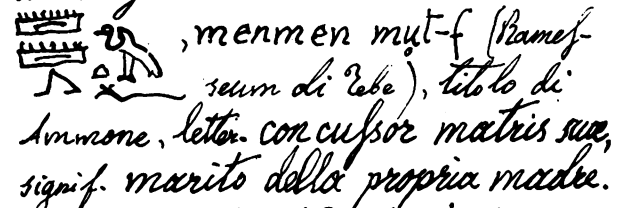 , menmen muṭ-f (Rames-
seum di Tebe), titolo di
Ammone, letter. concussor matris suæ,
signif. marito della propria madre.